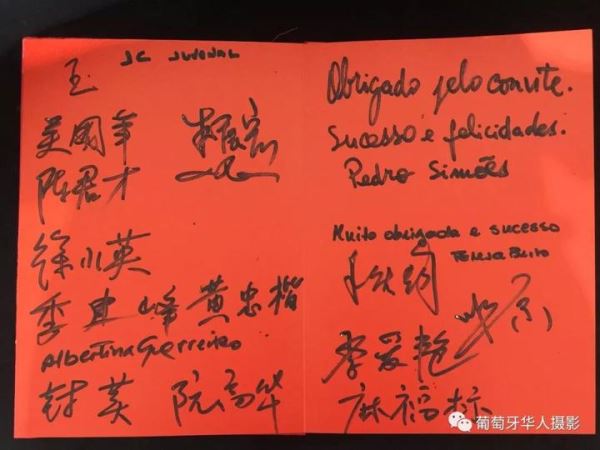 玉 JC JUVENAL
吴国华
陈君才
徐小英
季建峰 黄忠楷
Albertina Gerreiro
封英 阮高华
Obrigado pelo convite.
Sucesso e felicidades.
Pedro Simões
Muito obrigada e sucesso
Teresa Brito
李爱艳
麻福标
葡萄牙华人摄影